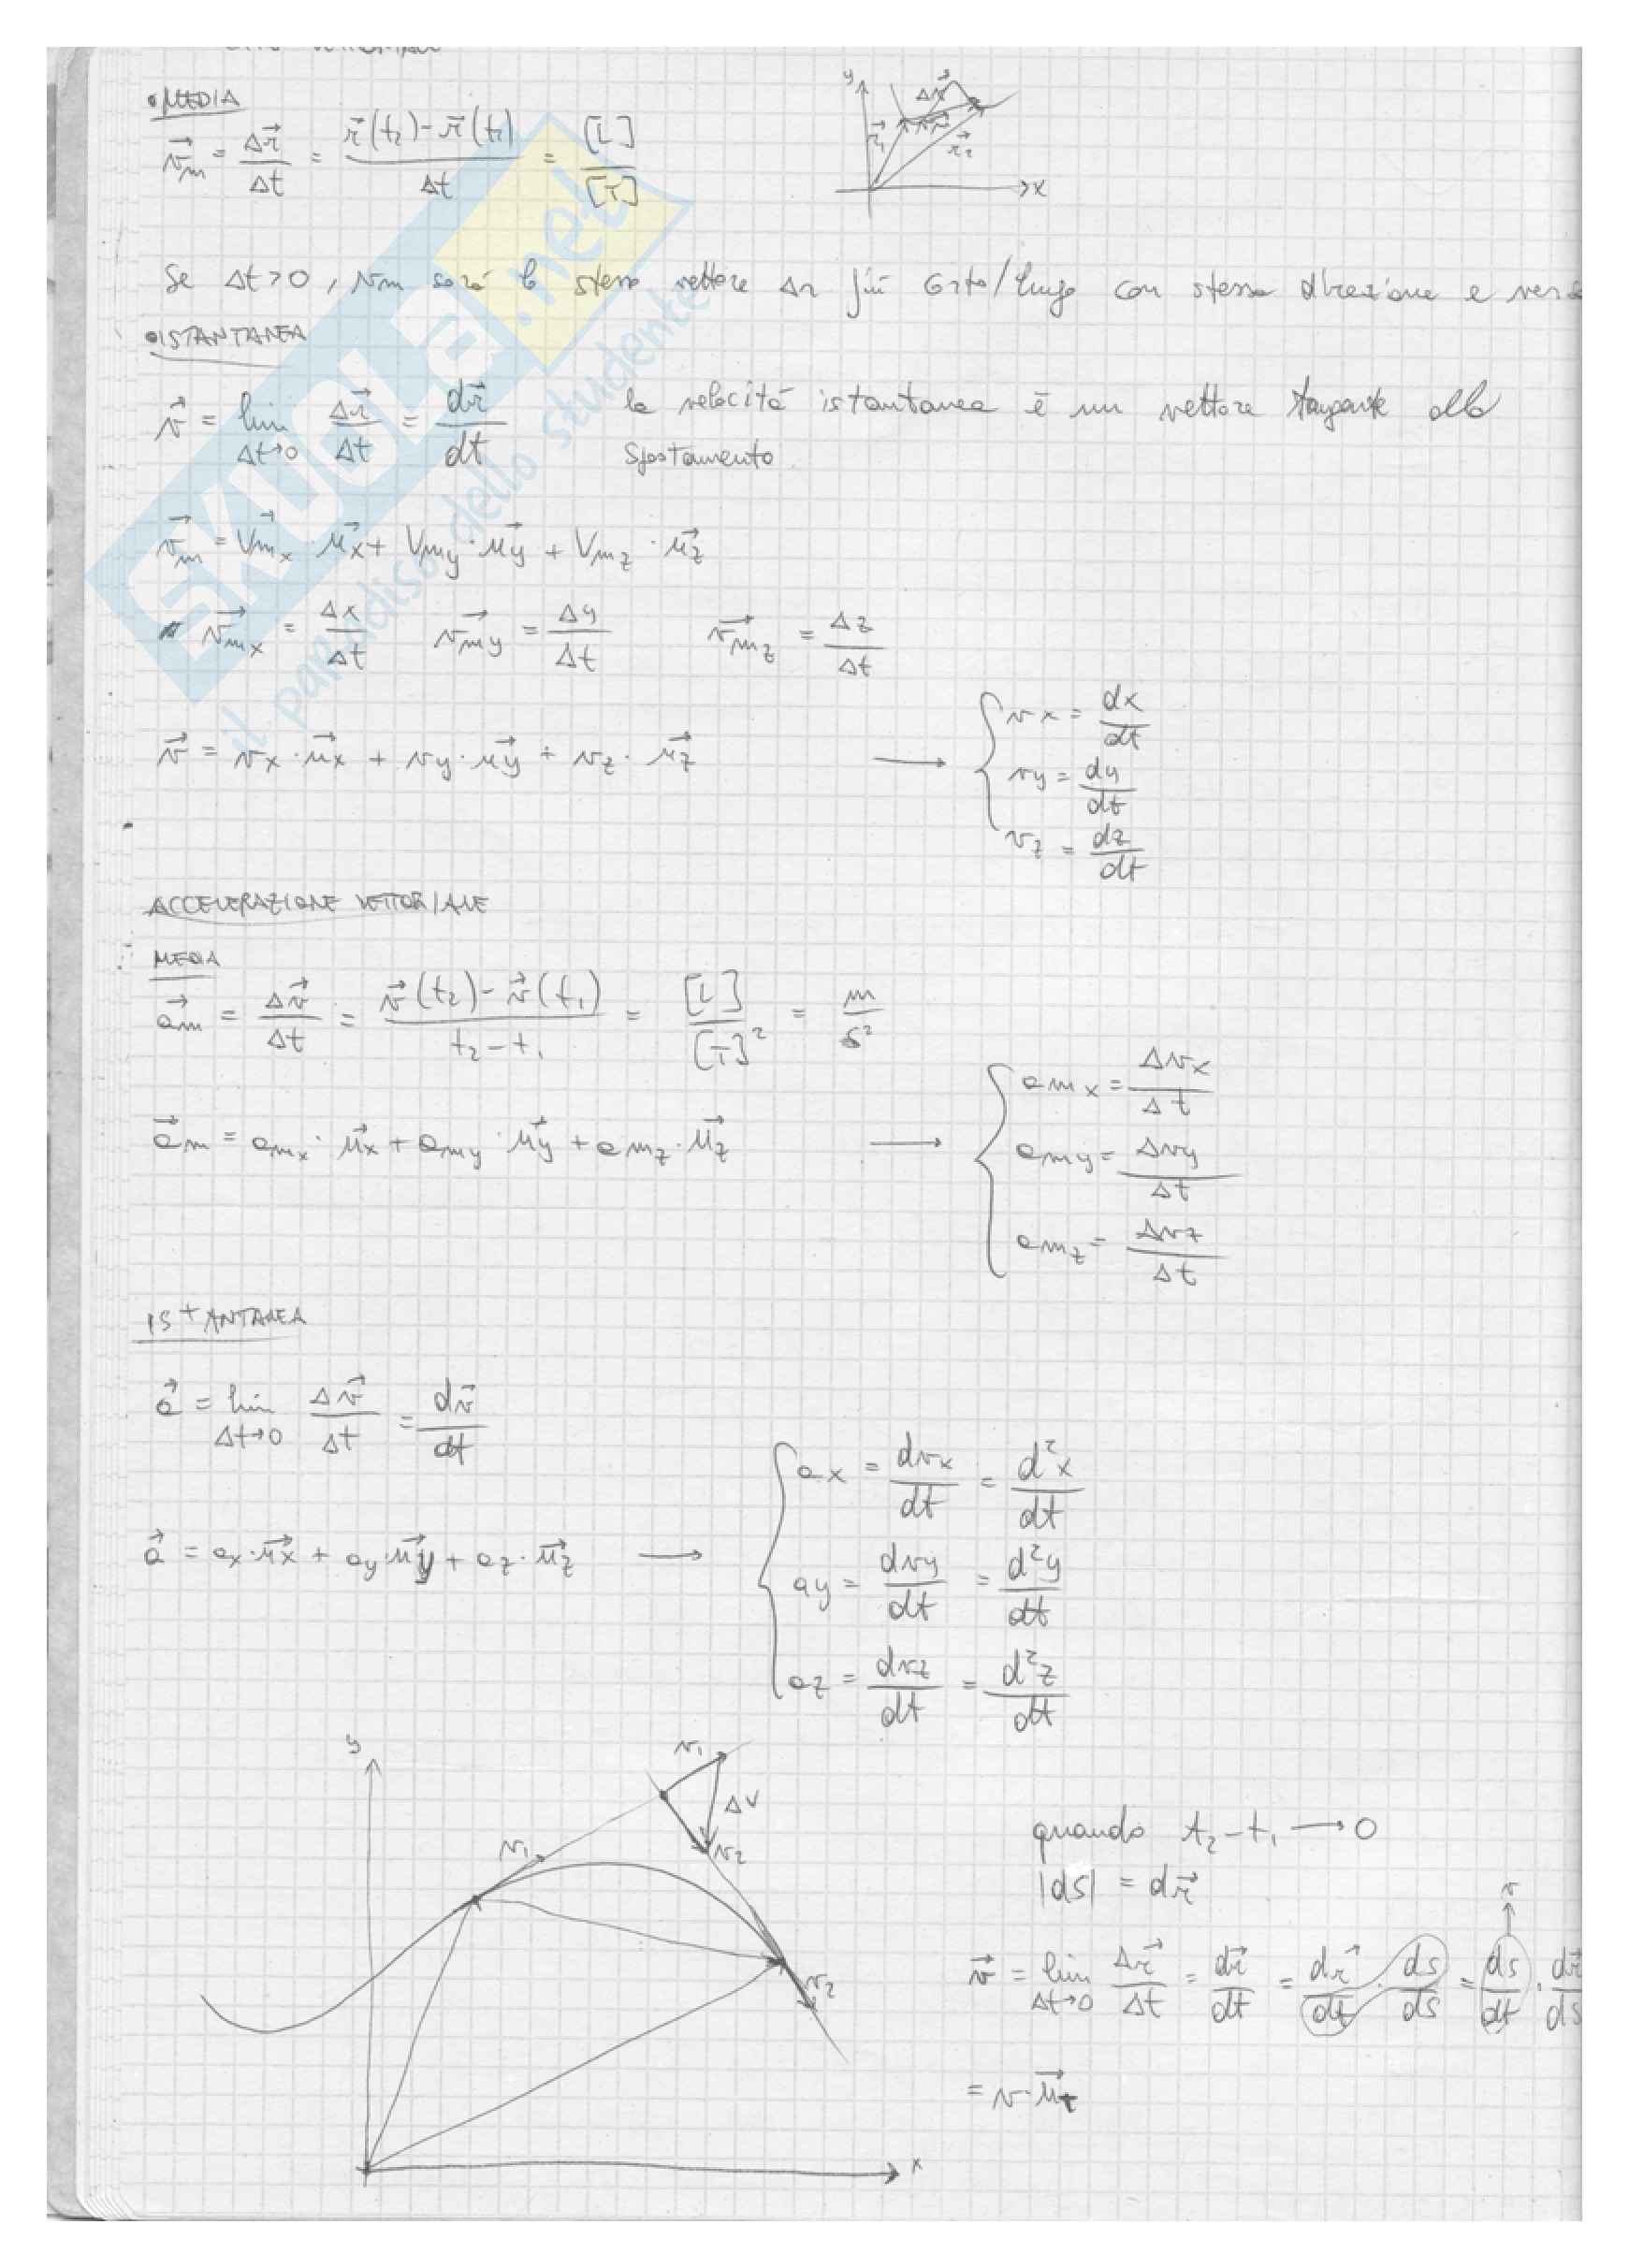 • MEDIA
v⃗m = Δr⃗/Δt = (r⃗(t₂) - r⃗(t₁))/Δt = [L]/[T]
y Δr⃗ r⃗₁ r⃗₂ x
Se Δt>0, vm sarà lo stesso vettore Δr più corto/lungo con stessa direzione e verso
• ISTANTANEA
v⃗ = lim Δt→0 Δr⃗/Δt = dr⃗/dt la velocità istantanea è un vettore tangente allo
spostamento
v⃗m = V⃗mx · u⃗x + Vmy · u⃗y + Vmz · u⃗z
v⃗mx = Δx/Δt v⃗my = Δy/Δt v⃗mz = Δz/Δt
v⃗ = vx · u⃗x + vy · u⃗y + vz · u⃗z → { vx = dx/dt
vy = dy/dt
vz = dz/dt
ACCELERAZIONE VETTORIALE
MEDIA
a⃗m = Δv⃗/Δt = (v⃗(t₂) - v⃗(t₁))/(t₂ - t₁) = [L]/[T]² = m/s²
a⃗m = amx · u⃗x + amy · u⃗y + amz · u⃗z → { amx = Δvx/Δt
amy = Δvy/Δt
amz = Δvz/Δt
ISTANTANEA
a⃗ = lim Δt→0 Δv⃗/Δt = dv⃗/dt
a⃗ = ax · u⃗x + ay · u⃗y + az · u⃗z → { ax = dvx/dt = d²x/dt
ay = dvy/dt = d²y/dt
az = dvz/dt = d²z/dt
y v₁ ΔV v₂ v₁ v₂ x
quando t₂ - t₁ → 0
|ds| = dr⃗
v
v⃗ = lim Δt→0 Δr⃗/Δt = dr⃗/dt = dr⃗/dt · ds/ds = ds/dt · dr⃗/ds
= v · u⃗t
SKUOLA.net
il paradiso dello studente